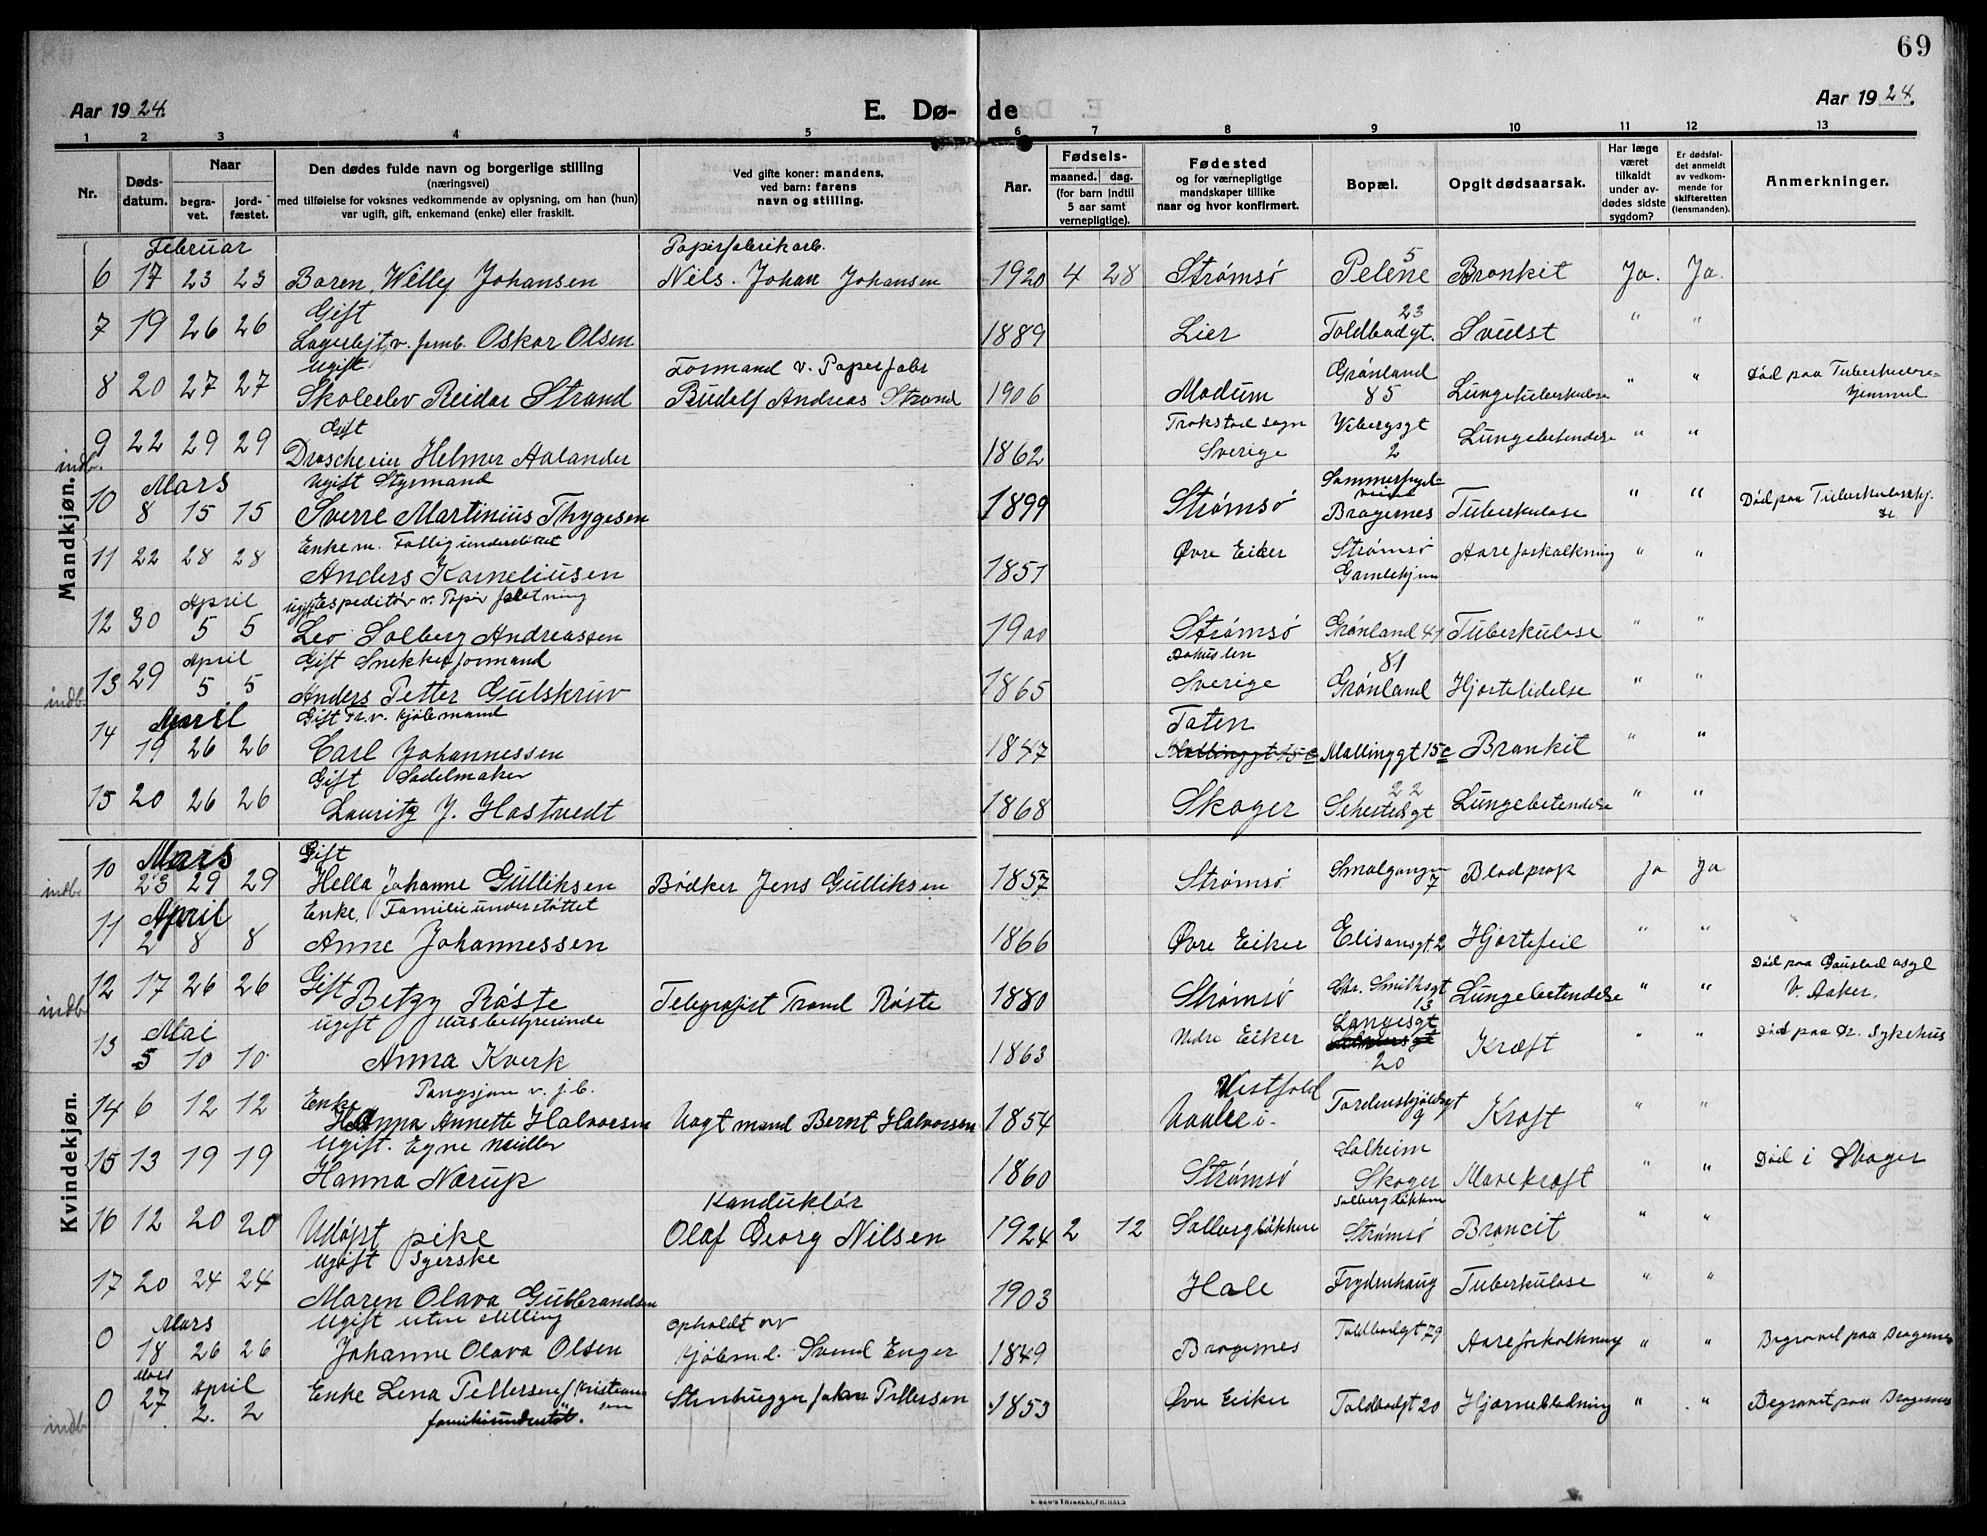 69
Aar 1924.
E. Dø- de
Aar 1924.
1 2 3 4 5 6 7 8 9 10 11 12 13
Nr.
Døds-
datum.
Naar
begra-
vet.
jord-
fæstet.
Den dødes fulde navn og borgerlige stilling
(næringsvei)
med tilføielse for voksnes vedkommende av oplysning, om han (hun)
var ugift, gift, enkemand (enke) eller fraskilt.
Ved gifte koner: mandens,
ved barn: farens
navn og stilling.
Aar.
Fødsels-
maaned. dag.
(for barn indtil
5 aar samt
vernepligtige).
Fødested
og for værnepligtige
mandskaper tillike
naar og hvor konfirmert.
Bopæl.
Opgit dødsaarsak.
Har læge
været
tilkaldt
under av-
dødes sidste
sygdom?
Er dødsfal-
det anmeldt
av vedkom-
mende for
skifteretten
(lensmanden).
Anmerkninger.
Mandkjøn.
Februar Papirfabrikarb. 5
6 17 23 23 Baren, Willy Johansen Nils. Johan Johansen 1920 4 28 Strømsø Pelene Bronkit Ja. Ja.
Gift 23
7 19 26 26 Oskar Olsen 1889 Lier Toldbodgt. Svulst " "
Ugift Formand v. Papirfabr Grønland Død paa Tuberkulose-
8 20 27 27 Skoleelev Reidar Strand Rudolf Andreas Strand 1906 Modum 85 Lungetuberkulose " " hjemmet
Gift Sogn Wibergsgt
9 22 29 29 Helmer Aalander 1862 Sverige 2 Lungebetendelse " "
indb.
Mars Ugift Styrmand
10 8 15 15 Sverre Martinius Thygesen 1899 Strømsø Bragernes Tuberkulose " " Død paa Tuberkulosehj.
Enkem. Fattigunderstøttet Strømsø
11 22 28 28 Anders Korneliusen 1851 Øvre Eiker Gamlehjem Aareforkalkning " "
April ugift Espeditør v. Papir
12 30 5 5 Leo Solberg Andreassen 1900 Strømsø Grønland 41 Tuberkulose " "
April Gift Snekkerformand 81
indb. 13 29 5 5 Anders Petter Gulskruv 1865 Sverige Grønland Hjertelidelse " "
April Gift Fr.v. kjøbmand Toten
14 19 26 26 Carl Johannessen 1847 Møllinggt 15c Møllinggt 15c Bronkit " "
Gift Sadelmaker 22
15 20 26 26 Lauritz J. Hostvedt 1868 Skoger Sehestedsgt Lungebetendelse " "
Kvindekjøn.
Mars Gift Smalgangen
indb. 10 23 29 29 Hella Johanne Gulliksen Bødker Jens Gulliksen 1857 Strømsø 7 Blodprop Ja Ja
April Enke, Familieunderstøttet
11 2 8 8 Anne Johannessen 1866 Øvre Eiker Elisonsgt. 2 Hjertefeil " "
Gift Chr. Smithsgt Død paa Gaustad asyl
indb. 12 17 26 26 Betzy Røste Telegrafist Trond Røste 1880 Strømsø 13 Lungebetendelse " " V. Aaker.
Mai ugift Husbestyrerinde Langesgt
13 5 10 10 Anna Kverk 1863 Nedre Eiker 20 Kræft " " Død paa Dr. Sykehus
Enke Pangsjon v. j.b. Vestfold Tordenskjoldsgt
14 6 12 12 Hanna Annette Halvorsen Vogtmand Bernt Halvorsen 1854 Vaale i 9 Kræft " "
Ugift. Egne midler Solheim
15 13 19 19 Hanna Nærup 1860 Strømsø Skoger Mavekræft " " Død i Skoger
Konduktør Solbergløkken
16 12 20 20 Udøpt pike Olaf Georg Nilsen 1924 2 12 Solbergløkken Strømsø Broncit " "
Ugift Syerske
17 20 24 24 Maren Olava Gulbrandsen 1903 Hole Frydenhaug Tuberkulose " "
Mars Ugift uten stilling opholdt av
0 18 26 26 Johanne Olava Olsen kjøbm.d. Svend Enger 1849 Bragernes Toldbodgt 79 Aareforkalkning " " Begravet paa Bragernes
Mars April
indb 0 27 2. 2 Enke Lena Pettersen f. Kristiansen Stenhugger Johan Pettersen 1853 Øvre Eiker Toldbodgt 20 Hjerneblødning " " Begravet paa Bragernes
familieunderstøt.